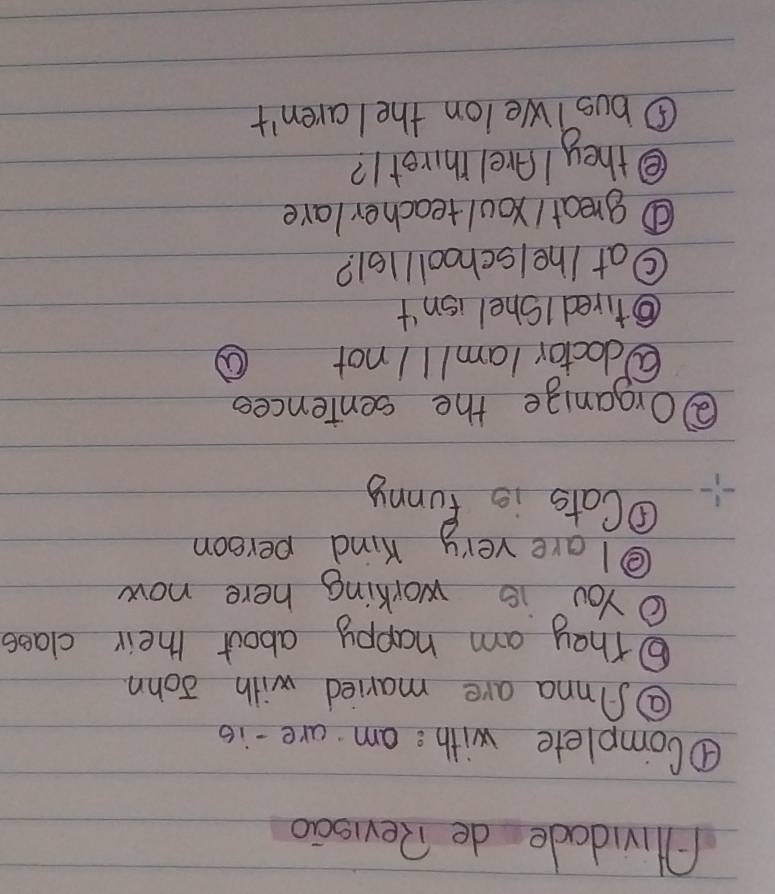 Atividade de Revisão
① Complete with: am - are - is
ⓐ Anna are maried with John.
ⓑ They am happy about their class
ⓒ You is working here now
ⓔ I are very kind person
ⓕ Cats is funny
② Organize the sentences
ⓐ doctor / am / I / not ⓐ
ⓑ tired / She / isn't
ⓒ at / he / school / Is / ?
ⓓ great / You / teacher / are
ⓔ they / Are / thirst / ?
ⓕ bus / We / on the / aren't